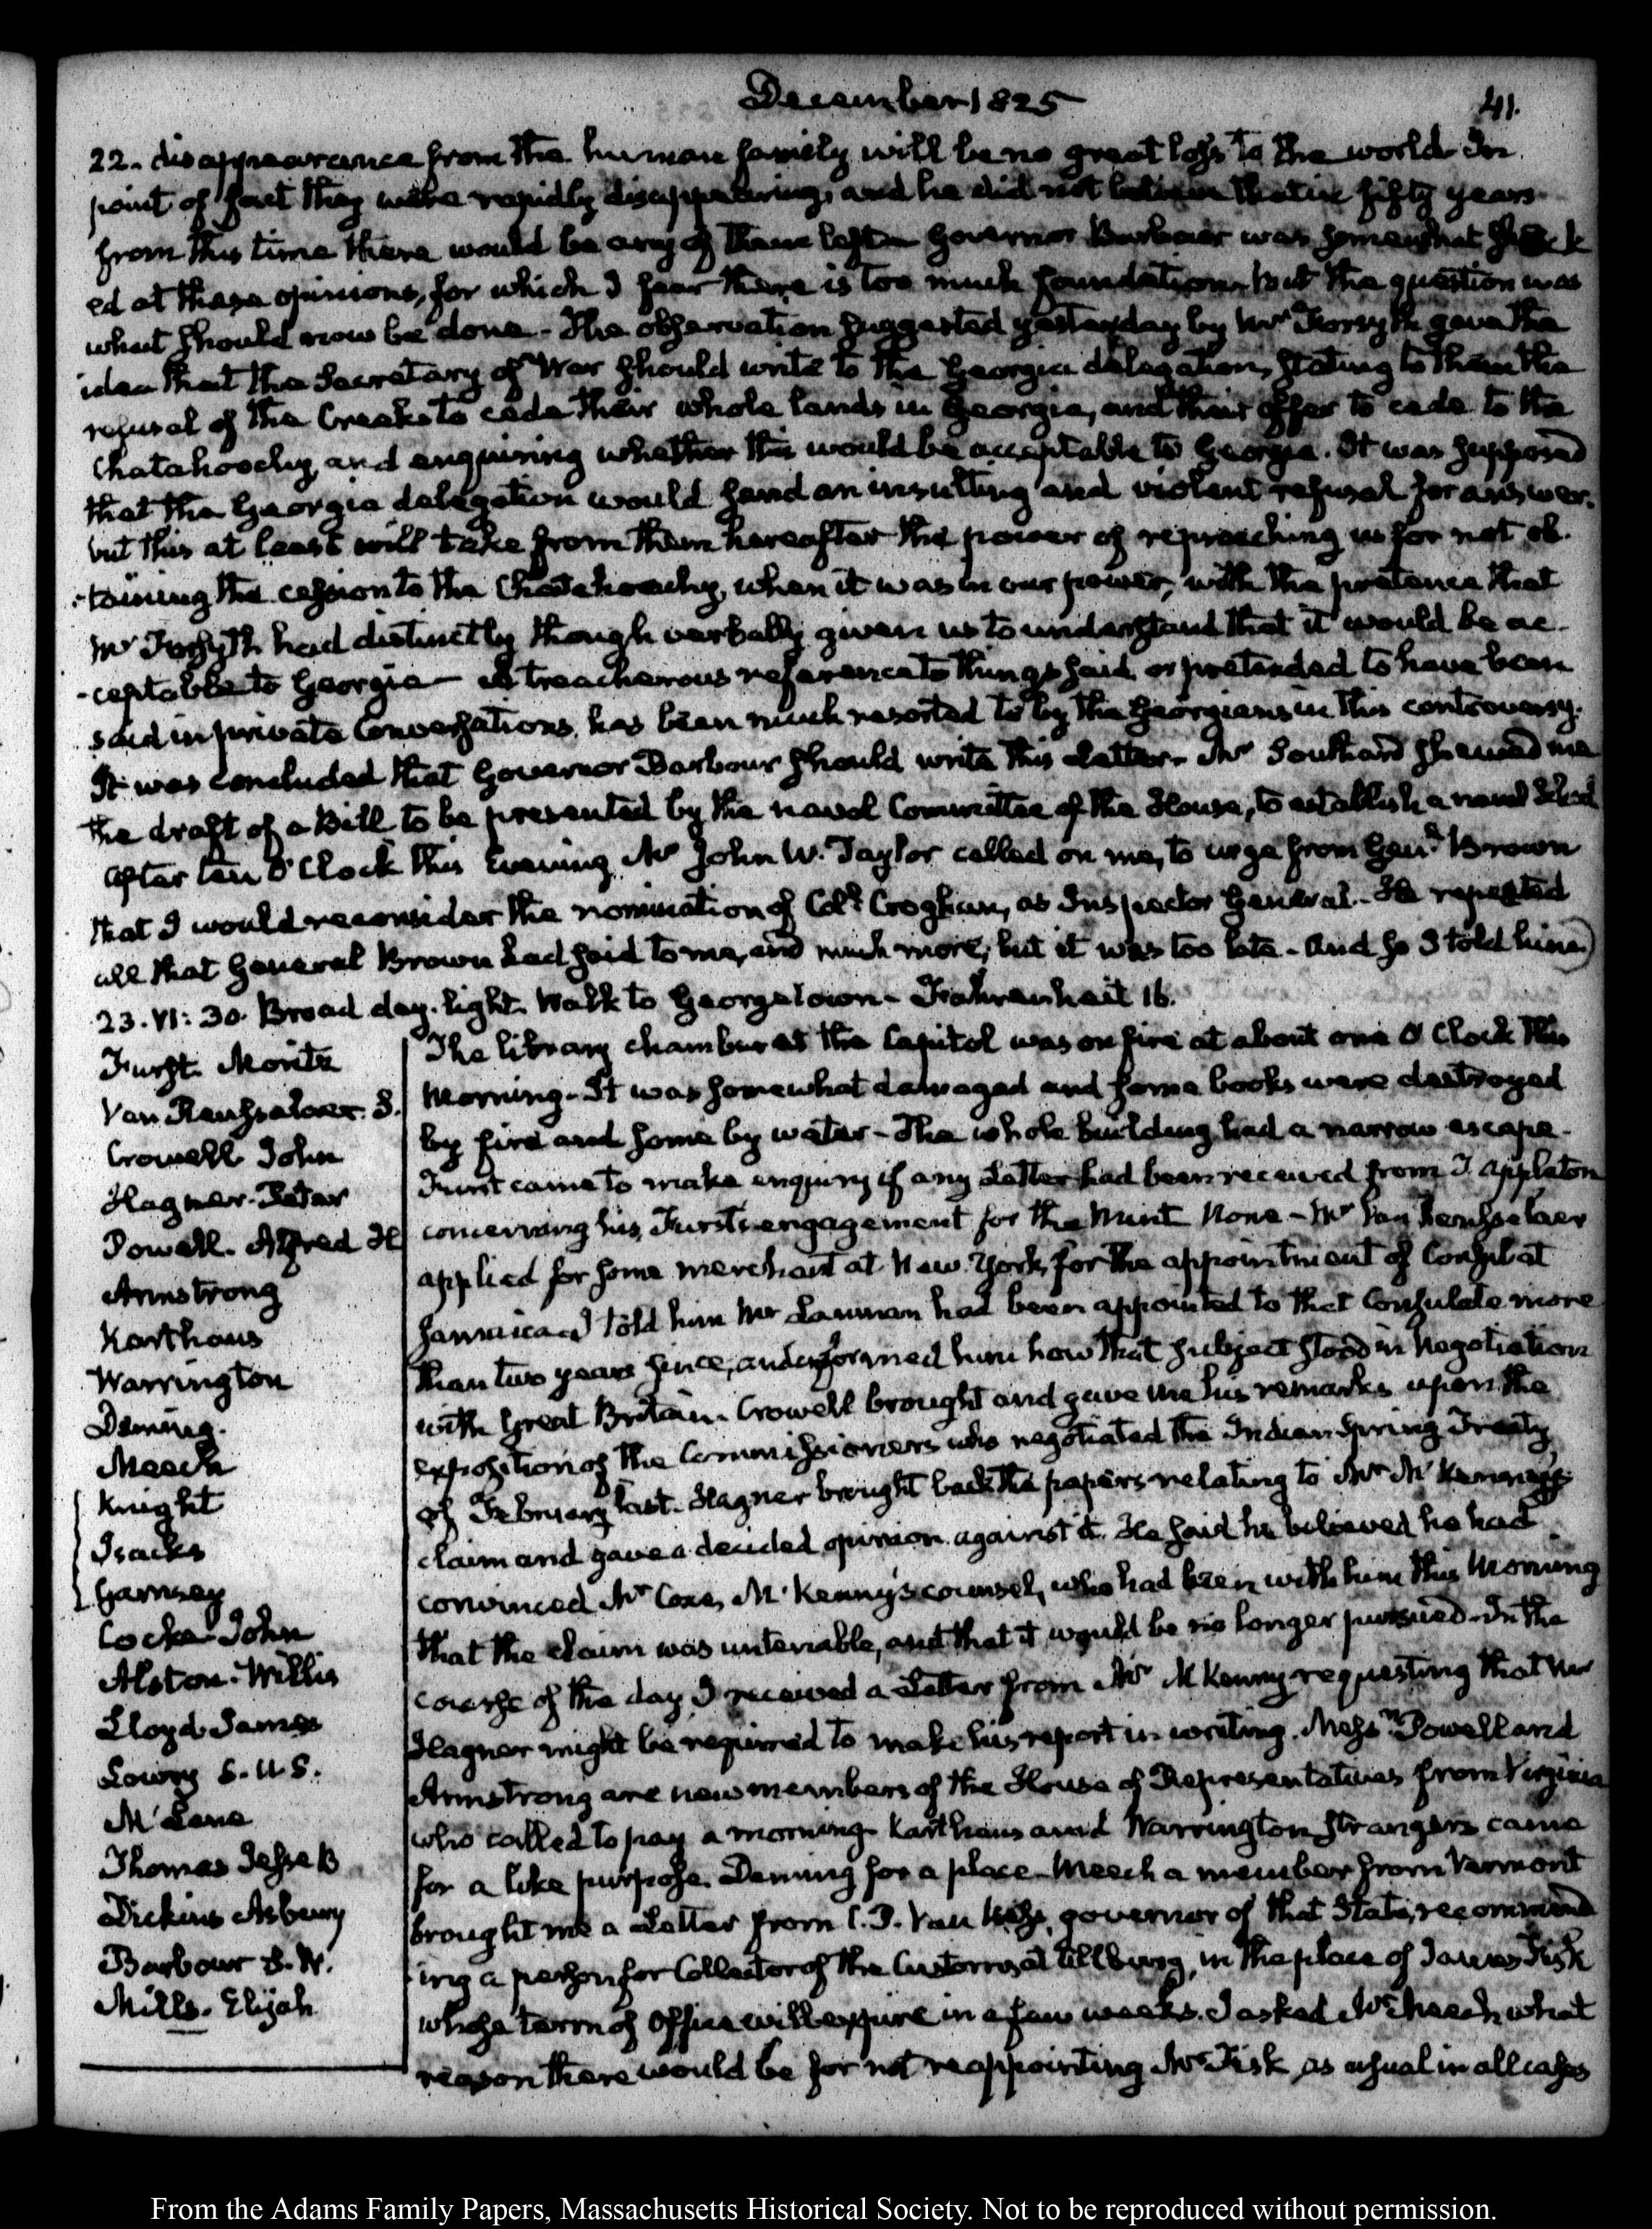 December 1825
41.
22. disappearance from the human family will be no great loss to the world. In
point of fact they were rapidly disappearing, and he did not believe that in fifty years
from this time there would be any of them left. Governor Barbour was somewhat shock
ed at these opinions, for which I fear there is too much foundation. But the question was
what should now be done. The observation suggested yesterday by Mr Forsyth gave the
idea that the Secretary of War should write to the Georgia delegation, stating to them the
refusal of the Creeks to cede their whole lands in Georgia, and their offer to cede to the
Chatahoochy, and enquiring whether this would be acceptable to Georgia. It was supposed
that the Georgia delegation would send an insulting and violent refusal for answer.
but this at least will take from them hereafter the power of reproaching us for not ob-
-taining the cession to the Chatahoochy, when it was in our power, with the pretence that
Mr Forsyth had distinctly though verbally given us to understand that it would be ac-
-ceptable to Georgia — A treacherous reference to things said or pretended to have been
said in private Conversations, has been much resorted to by the Georgians in this controversy.
It was concluded that Governor Barbour should write this Letter. Mr Southard shewed me
the draft of a Bill to be presented by the naval Committee of the House, to establish a naval School
After ten O'Clock this Evening Mr John W. Taylor called on me, to urge from Genl. Brown
that I would reconsider the nomination of Coll. Croghan, as Inspector General. He repeated
all that General Brown had said to me, and much more, but it was too late. And so I told him
23. VI: 30. Broad day-light. Walk to Georgetown. Fahrenheit 16.
Furst. Moritz
Van Rensselaer. S.
Crowell John
Hagner. Peter
Powell. Alfred H
Armstrong
Karthaus
Warrington
Deming.
Meech
Knight
Isacks
Garnsey
Cocke John
Alston. Willis
Lloyd James
Lowry S. U.S.
McLane
Thomas Jesse B
Dickins Asbury
Barbour S. W.
Mills. Elijah
The library chamber at the Capitol was on fire at about one O'Clock this
Morning. It was somewhat damaged and some books were destroyed
by fire and some by water. The whole building had a narrow escape.
Furst came to make enquiry if any Letter had been received from T. Appleton
concerning his, Furst's engagement for the Mint. None — Mr Van Rensselaer
applied for some merchant at New-York, for the appointment of Consul at
Jamaica. I told him Mr Lanman had been appointed to that Consulate more
than two years since, and informed him how that subject stood in Negotiation
with Great Britain. Crowell brought and gave me his remarks upon the
exposition of the Commissioners who negotiated the Indian Spring Treaty
of February last. Hagner brought back the papers relating to Mr McKenney's
claim and gave a decided opinion against it. He said he believed he had
convinced Mr Coxe, McKenny's counsel, who had been with him this Morning
that the claim was untenable, and that it would be no longer pursued. In the
course of the day I received a Letter from Mr McKenny requesting that Mr
Hagner might be required to make his report in writing. Messrs Powell and
Armstrong are new members of the House of Representatives from Virginia
who called to pay a morning Karthaus and Warrington strangers came
for a like purpose. Deming for a place. Meech a member from Vermont
brought me a Letter from C. P. Van Ness, governor of that State, recommend
ing a person for Collector of the Customs at Allburg, in the place of James Fisk
whose term of Office will expire in a few weeks. I asked Mr Meech what
reason there would be for not reappointing Mr Fisk, as usual in all cases
From the Adams Family Papers, Massachusetts Historical Society. Not to be reproduced without permission.